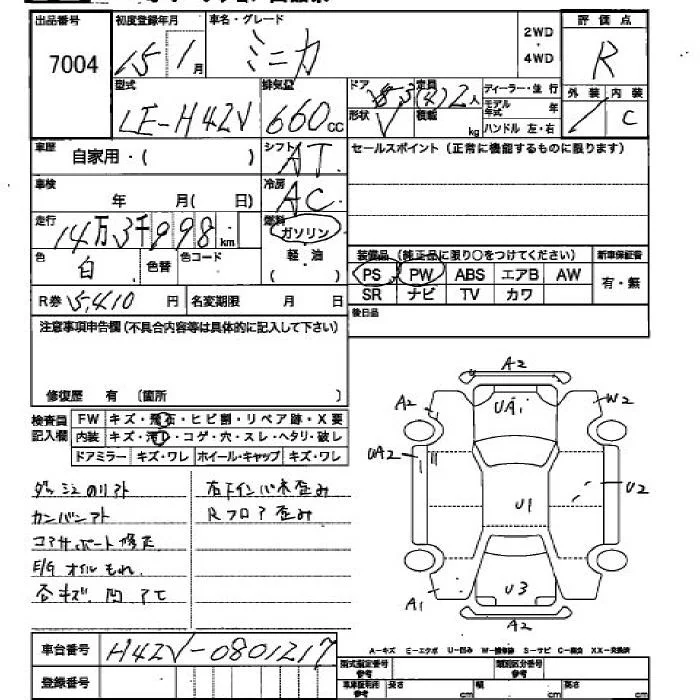 出品番号 初度登録年月 車名・グレード 2WD・4WD 評価点
7004 15 1月 ミニカ R
型式 排気量 ドア 形状 定員 積載 kg ディーラー・並行 モデル年式 年 ハンドル 左・右 外装 内装
LE-H42V 660cc 3 V (4) 2人 C
車歴 自家用・( ) シフト AT セールスポイント(正常に機能するものに限ります)
車検 年 月( 日) 冷房 AC
走行 14万3千998km 燃料 ガソリン 軽・油 ( )
色 白 色替 色コード
装備品(純正品に限り○をつけてください) 新車保証書
PS PW ABS エアB AW 有・無
SR ナビ TV カワ
R券 5,410円 名変期限 月 日
後日品
注意事項申告欄(不具合内容等は具体的に記入して下さい)
修復歴 有 (箇所 )
検査員記入欄 FW キズ・飛石・ヒビ割・リペア跡・X要
内装 キズ・汚レ・コゲ・穴・スレ・ヘタリ・破レ
ドアミラー キズ・ワレ ホイール・キャップ キズ・ワレ
ダッシュのリアト
カンバンアト
コアサポート修正
E/G オイルもれ
各キズ 凹 アて
右F インパネ歪み
Rフロア歪み
A2
A2 UA1 W2
UA2 U1 U2
A1 U3
A2
A-キズ E-エクボ U-凹み W-補修跡 S-サビ C-腐食 XX-交換済
車台番号 H42V-0801217
登録番号
型式指定番号 参考 類別区分番号 参考
車体証明用 参考 長さ cm 幅 cm 高さ cm